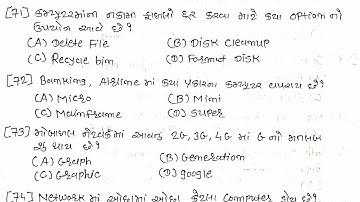 [71] કમ્પ્યુટરમાંના નકામી ફાઈલો દૂર કરવા માટે કયા option નો
ઉપયોગ થાય છે ?
(A) Delete File (B) Disk Cleanup
(C) Recycle bin (D) Format Disk
[72] Banking, Airline માં કયા પ્રકારના કમ્પ્યુટર વપરાય છે?
(A) Micro (B) Mini
(C) Mainframe (D) Super
[73] મોબાઇલ નેટવર્કમાં આવતું 2G, 3G, 4G માં G નો મતલબ
શું થાય છે?
(A) Graph (B) Generation
(C) Graphic (D) google
[74] Network માં ઓછામાં ઓછા કેટલા Computer હોય છે?